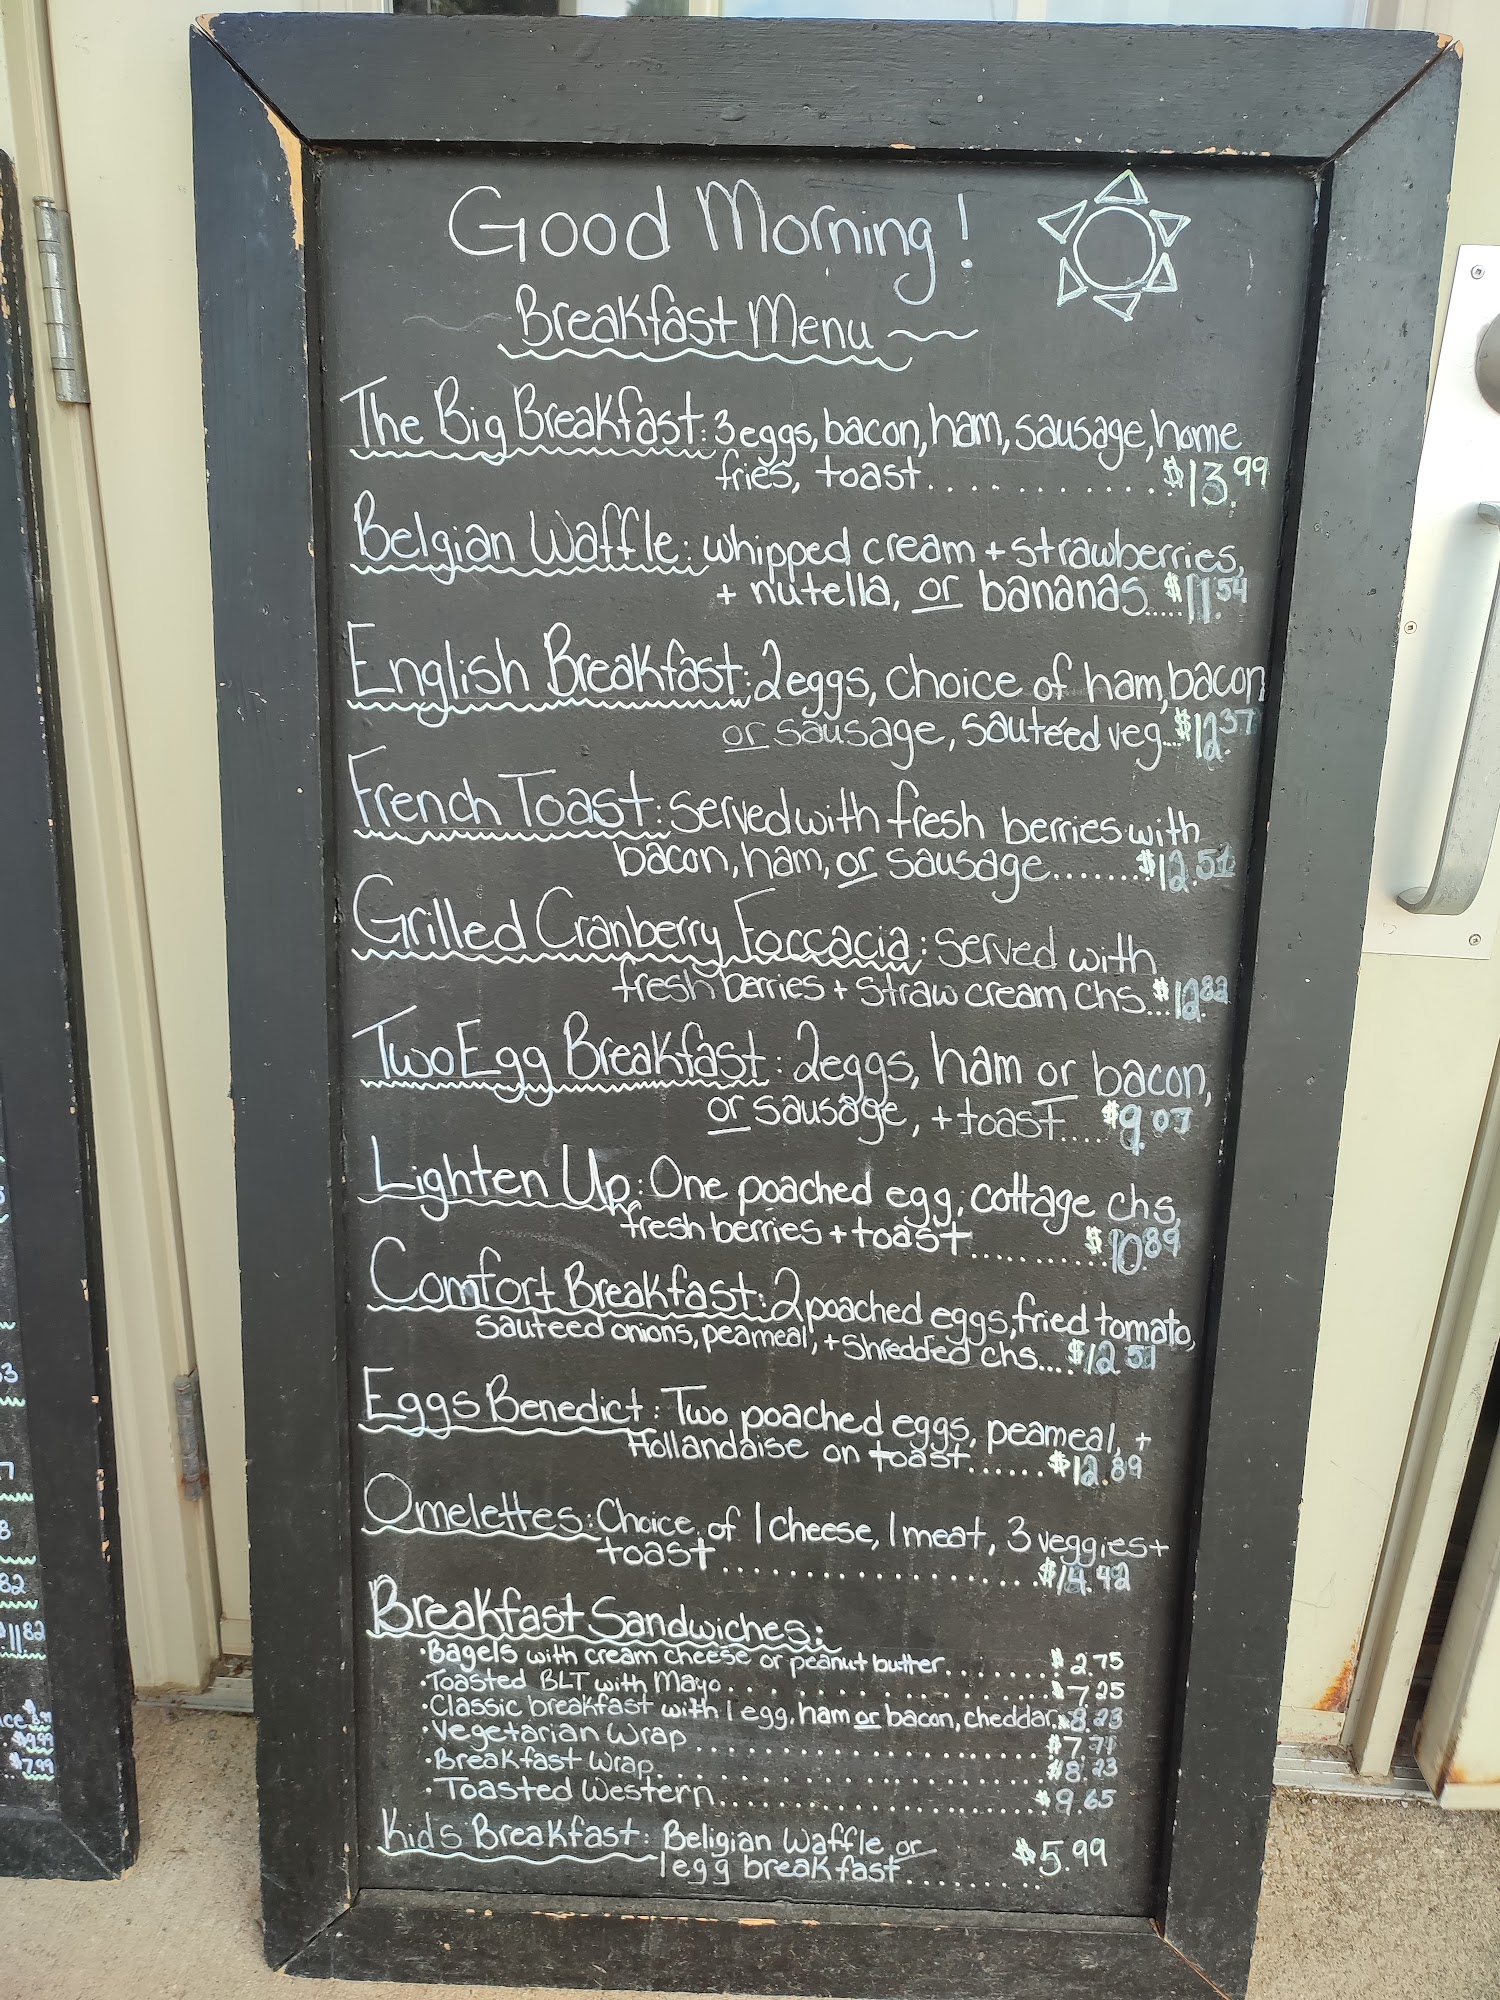 Good Morning!
Breakfast Menu
The Big Breakfast: 3 eggs, bacon, ham, sausage, home
fries, toast............$13.99
Belgian Waffle: whipped cream + strawberries,
+ nutella, or bananas.....$11.54
English Breakfast: 2 eggs, choice of ham, bacon
or sausage, sauteéd veg...$12.37
French Toast: served with fresh berries with
bacon, ham, or sausage.......$12.51
Grilled Cranberry Foccacia: served with
fresh berries + straw cream chs...$12.82
Two Egg Breakfast: 2 eggs, ham or bacon,
or sausage, + toast....$9.07
Lighten Up: One poached egg, cottage chs,
fresh berries + toast..........$10.89
Comfort Breakfast: 2 poached eggs, fried tomato,
sauteed onions, peameal, + shredded chs...$12.51
Eggs Benedict: Two poached eggs, peameal, +
Hollandaise on toast......$12.89
Omelettes: Choice of 1 cheese, 1 meat, 3 veggies +
toast....................$14.42
Breakfast Sandwiches:
•Bagels with cream cheese or peanut butter........$2.75
•Toasted BLT with Mayo....................$7.25
•Classic breakfast with 1 egg, ham or bacon, cheddar.$8.23
•Vegetarian Wrap......................$7.71
•Breakfast Wrap.......................$8.23
•Toasted Western....................$9.65
Kids Breakfast: Beligian Waffle or $5.99
1 egg breakfast.........
82
$11.82
$9.99
$7.99